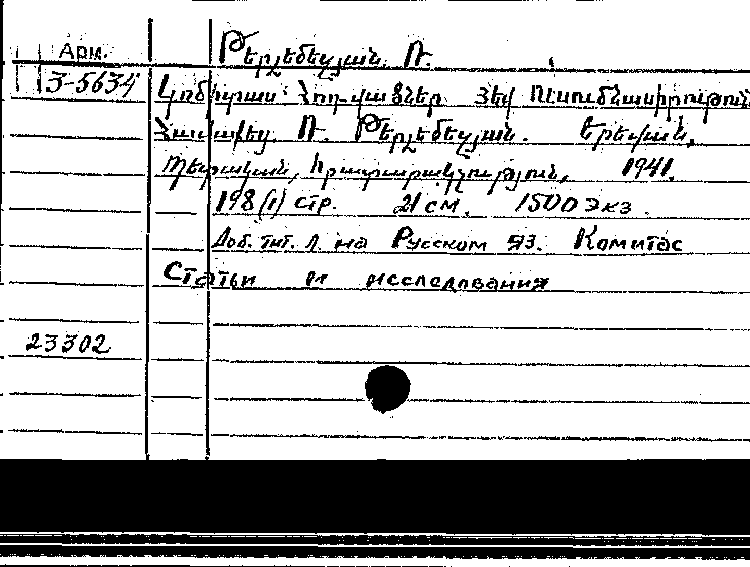 Арм.
3-5634
Թերլեմեզյան Ռ.
Կոմիտաս Հոդվածներ յեվ Ուսումնասիրություն
Հավաքեց Ռ. Թերլեմեզյան. Երեվան,
Պետական հրատարակչություն, 1941.
198 (1) стр. 21 см. 1500 экз.
Доб. тит. л. на Русском яз. Комитас
Статьи и исследования
23302